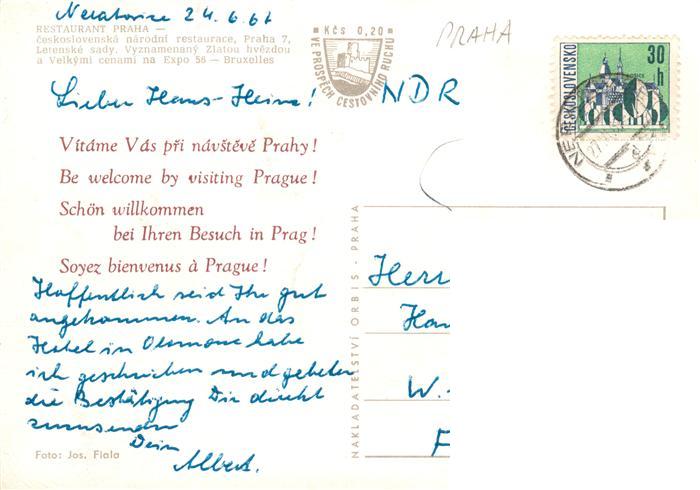 Neratovice 24.6.67
RESTAURANT PRAHA —
československá národní restaurace, Praha 7,
Letenské sady. Vyznamenaný Zlatou hvězdou
a Velkými cenami na Expo 58 — Bruxelles
Kčs 0,20
VE PROSPĚCH CESTOVNÍHO RUCHU
PRAHA
30 h
ČESKOSLOVENSKO
Lieber Hans-Heinz!
NDR
Vítáme Vás při návštěvě Prahy!
Be welcome by visiting Prague!
Schön willkommen
bei Ihren Besuch in Prag!
Soyez bienvenus à Prague!
Hoffentlich seid Ihr gut
angekommen. An das
Hotel in Olomouc habe
ich geschrieben und gebeten
die Bestätigung Dir direkt
zuzusenden
Dein
Albert.
Foto: Jos. Fiala
NAKLADATELSTVÍ ORBIS - PRAHA
Herr
Han
W.
F